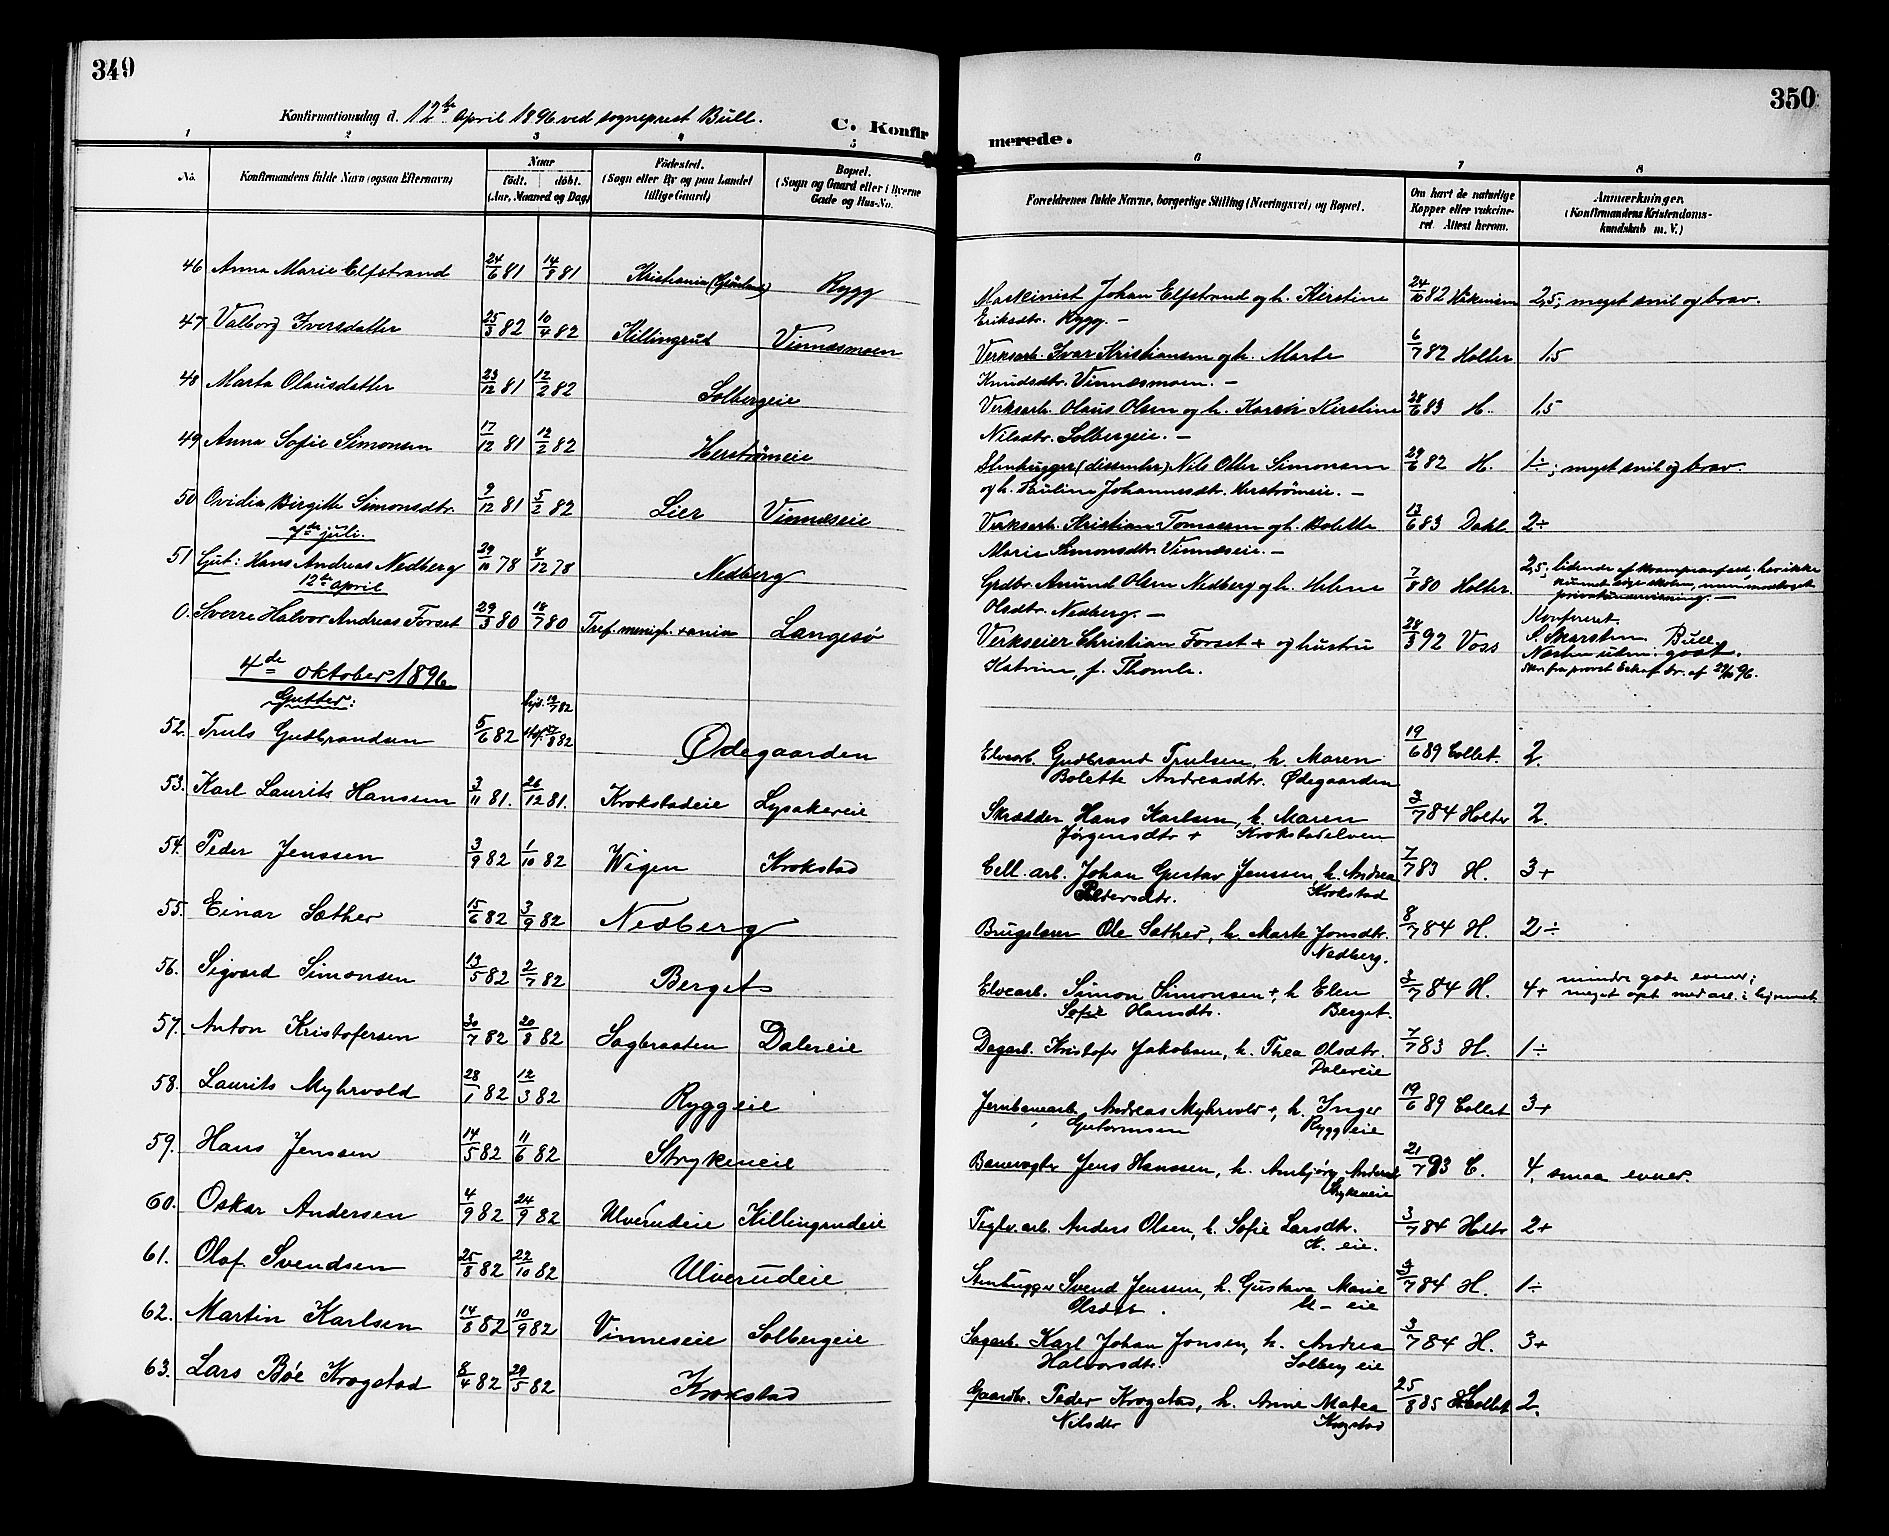 349
Konfirmationsdag d. 12te April 1896 ved sogneprest Bull.
C. Konfir
1 2 3 4 5
No. Konfirmandens fulde Navn (ogsaa Efternavn) Naar født. døbt. (Aar, Maaned og Dag) Fødested. (Sogn eller By og paa Landet tillige Gaard) Bopæl. (Sogn og Gaard eller i Byerne Gade og Hus-No.
46 Anna Marie Elfstrand 24/6 81 14/8 81 Kristiania Rygg
47 Valborg Iversdatter 25/3 82 10/4 82 Killingrud Vinnæsmoen
48 Marta Olausdatter 23/12 81 12/2 82 Solbergeie
49 Anna Sofie Simonsen 17/12 81 12/2 82 Herstrømeie
50 Ovidia Birgitte Simonsdtr. 9/12 81 5/2 82 Lier Vinnæseie
7de juli.
51 Gut: Hans Andreas Nedberg 29/10 78 8/12 78 Nedberg
12te april
0. Sverre Halvor Andreas Forset 29/3 80 18/7 80 Tref. menigh. Xania Langesø
4de oktober 1896
Gutter:
52. Truls Gudbrandsen 5/6 82 hjd. 12/7 82 Ødegaarden
53. Karl Laurits Hanssen 3/11 81. 26/12 81. Krokstadeie Lysakereie
54. Peder Jenssen 3/9 82 1/10 82 Wigen Krokstad
55. Einar Sæther 15/6 82 3/9 82 Nedberg
56. Sigvard Simonsen 13/5 82 2/7 82 Berget
57. Anton Kristofersen 30/7 82 20/8 82 Sagbraaten Dalereie
58. Laurits Myhrvold 28/1 82 12/3 82 Ryggeie
59. Hans Jenssen 14/5 82 11/6 82 Strykeneie
60. Oskar Andersen 4/9 82 24/9 82 Ulverudeie Killingrudeie
61. Olaf Svendsen 25/8 82 22/10 82 Ulverudeie
62. Martin Karlsen 14/8 82 10/9 82 Vinneseie Solbergeie
63. Lars Bøe Krogstad 8/4 82 29/5 82 Krokstad
350
merede.
6 7 8
Forældrenes fulde Navne, borgerlige Stilling (Næringsvei) og Bopæl. Om havt de naturlige Kopper eller vakcineret. Attest herom. Anmærkninger. (Konfirmandens Kristendomskundskab m. V.)
Maskinist Johan Elfstrand og h. Kirstine 24/10 82 2,5; meget snil og brav.
Eriksdtr. Rygg. –
Verksarb. Ivar Kristiansen og h. Marte 6/7 82 Holter 1,5
Knudsdtr. Vinnæsmoen. –
Verksarb. Olaus Olsen og h. Karen Kirstine 28/6 83 H. 1,5
Nilsdtr. Solbergeie. –
Stenhugger (dissenter) Nils Otter Simonsen 29/6 82 H. 1÷; meget snil og brav.
og h. Pauline Johannesdtr. Herstrømeie. –
Verksarb. Kristian Tomassen og h. Bolette 13/6 83 Dahl 2÷
Marie Simonsdtr. Vinnæseie. –
Grdbr. Amund Olsen Nedberg og h. Helene 7/8 80 Holter. 2,5; lidende af krampeanfald; har ikke
Olsdtr. Nedberg. – kunnet søge skolen, men modtaget
privatundervisning. –
Verkseier Christian Forset + og hustru 28/3 92 Voss Konfireret.
Katrine, f. Thomle. Bull
Næsten udm. godt.
Skr. fra provst Eskef. dr. af 22/10 96.
Elvearb. Gudbrand Trulsen, h. Maren 19/6 89 Collet. 2.
Bolette Andreasdtr. Ødegaarden
Skrædder Hans Karlsen, h. Maren 3/7 84 Holter 2.
Jørgensdtr + Krokstadelven
Cell. arb. Johan Gustav Jenssen, h. Andrea 7/7 83 H. 3+
Pedersdtr. Krokstad
Brugslæier Ole Sæther, h. Marte Jonsdtr. 8/7 84 H. 2÷
Nedberg.
Elvearb. Simon Simonsen +, h Elen 3/7 84 H. 4+ mindre gode evner;
Sofie Hansdtr. Berget. meget opt. med arb. i hjemmet
Dagarb. Kristofer Jakobsen, h. Thea Olsdtr. 7/7 83 H. 1÷
Dalereie
Jernbanearb. Andreas Myhrvold +, h. Inger 19/6 89 Collet 3+
Gutormsen Ryggeie
Banevogter Jens Hanssen, h. Anbjørg Andersd 21/7 93 C. 4, smaa evner.
Strykeneie
Teglv.arb. Anders Olsen, h. Sofie Larsdtr. 3/7 84 Holtr 2+
K. eie.
Stenhugger Svend Jenssen, h. Gustava Marie 3/7 84 H. 1÷
Olsdtr. U– eie
Sagarb. Karl Johan Jonsen, h. Andrea 3/7 84 H. 3+
Halvorsdtr. Solberg eie
Gaardbr. Peder Krogstad, h. Anne Matea 25/8 85 Collet 2.
Nilsdtr Krogstad